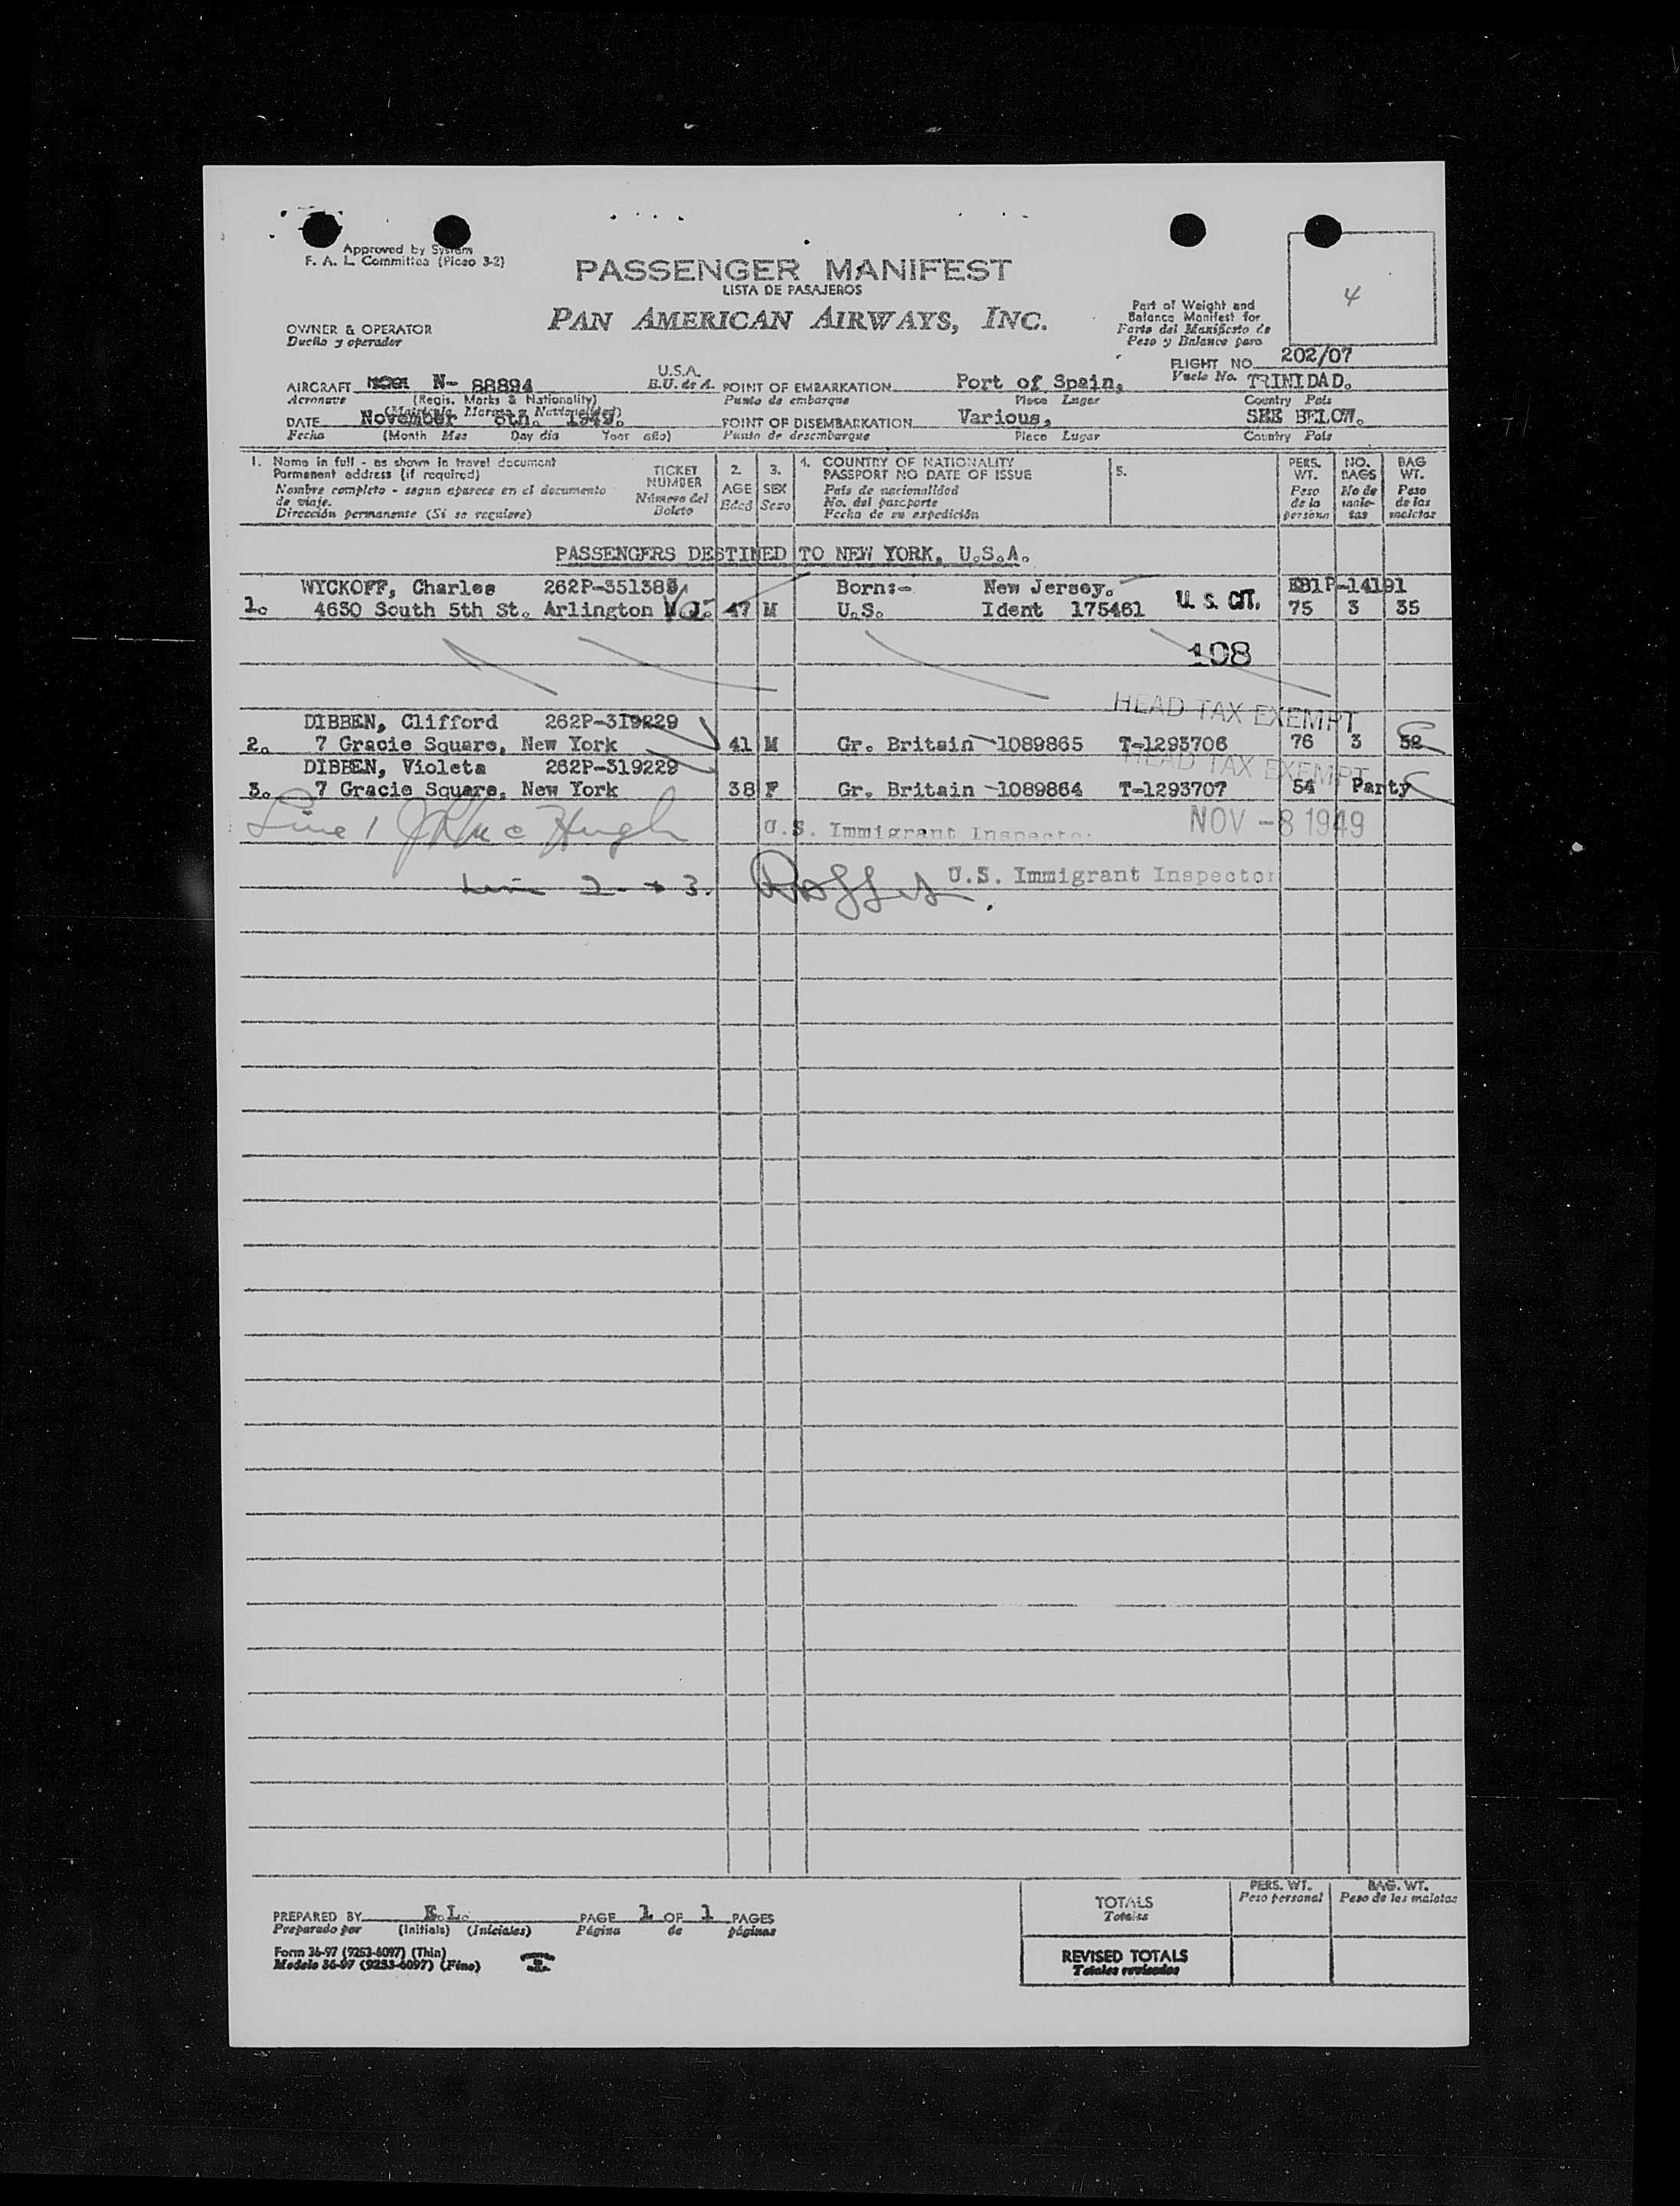 Approved by System
F. A. L. Committee (Picao 3-2)
PASSENGER MANIFEST
LISTA DE PASAJEROS
PAN AMERICAN AIRWAYS, INC.
4
Part of Weight and
Balance Manifest for
Parte del Manifiesto de
Peso y Balance para
OWNER & OPERATOR
Dueño y operador
FLIGHT NO. 202/07
Vuelo No.
AIRCRAFT N- 88894 U.S.A. POINT OF EMBARKATION Port of Spain, TRINIDAD.
Aeronave (Regis. Marks & Nationality) E.U. de A. Punto de embarque Place Lugar Country País
(Matrícula, Marcas y Nacionalidad)
DATE November 8th. 1949. POINT OF DISEMBARKATION Various, SEE BELOW.
Fecha (Month Mes Day día Year año) Punto de desembarque Place Lugar Country País
1. Name in full - as shown in travel document
Permanent address (if required)
Nombre completo - segun aparece en el documento
de viaje.
Dirección permanente (Si se requiere)
TICKET
NUMBER
Número del
Boleto
2.
AGE
Edad
3.
SEX
Sexo
4. COUNTRY OF NATIONALITY
PASSPORT NO DATE OF ISSUE
País de nacionalidad
No. del pasaporte
Fecha de su expedición
5.
PERS.
WT.
Peso
de la
persona
NO.
BAGS
No de
male-
tas
BAG
WT.
Peso
de las
maletas
PASSENGERS DESTINED TO NEW YORK, U.S.A.
WYCKOFF, Charles 262P-351388 Born:- New Jersey. EB1P-14191
1. 4630 South 5th St. Arlington Va. 47 M U.S. Ident 175461 U. S. CIT. 75 3 35
108
HEAD TAX EXEMPT
DIBBEN, Clifford 262P-319229
2. 7 Gracie Square, New York 41 M Gr. Britain -1089865 T-1293706 76 3 52
HEAD TAX EXEMPT
DIBBEN, Violeta 262P-319229
3. 7 Gracie Square, New York 38 F Gr. Britain -1089864 T-1293707 54 Party
Line 1 U.S. Immigrant Inspector NOV -8 1949
Line 2 + 3. U.S. Immigrant Inspector
PREPARED BY E.L. PAGE 1 OF 1 PAGES
Preparado por (Initials) (Iniciales) Página de páginas
Form 36-97 (9253-6097) (Thin)
Modelo 36-97 (9253-6097) (Fino)
PERS. WT. BAG. WT.
Peso personal Peso de las maletas
TOTALS
Totales
REVISED TOTALS
Totales revisados